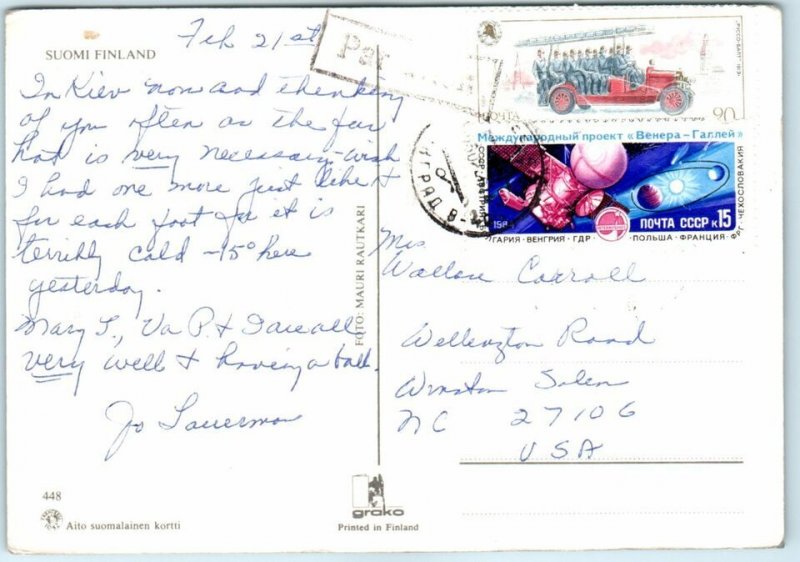 SUOMI FINLAND
Feb 21st
In Kiev now and thinking
of you often as the fur
hat is very necessary - wish
I had one more just like it
for each foot for it is
terribly cold -15° here
yesterday.
Mary L., Va P. & I are all
very well & having a ball.
Jo
448
Aito suomalainen kortti
FOTO: MAURI RAUTKARI
grako
Printed in Finland
Par
ПОЧТА
90
Международный проект «Венера-Галлей»
ПОЧТА СССР к15
ГАРИЯ · ВЕНГРИЯ · ГДР · ПОЛЬША · ФРАНЦИЯ · ФРГ · ЧЕХОСЛОВАКИЯ
Mrs
Wallace Carroll
Wellington Road
Winston Salem
NC 27106
USA